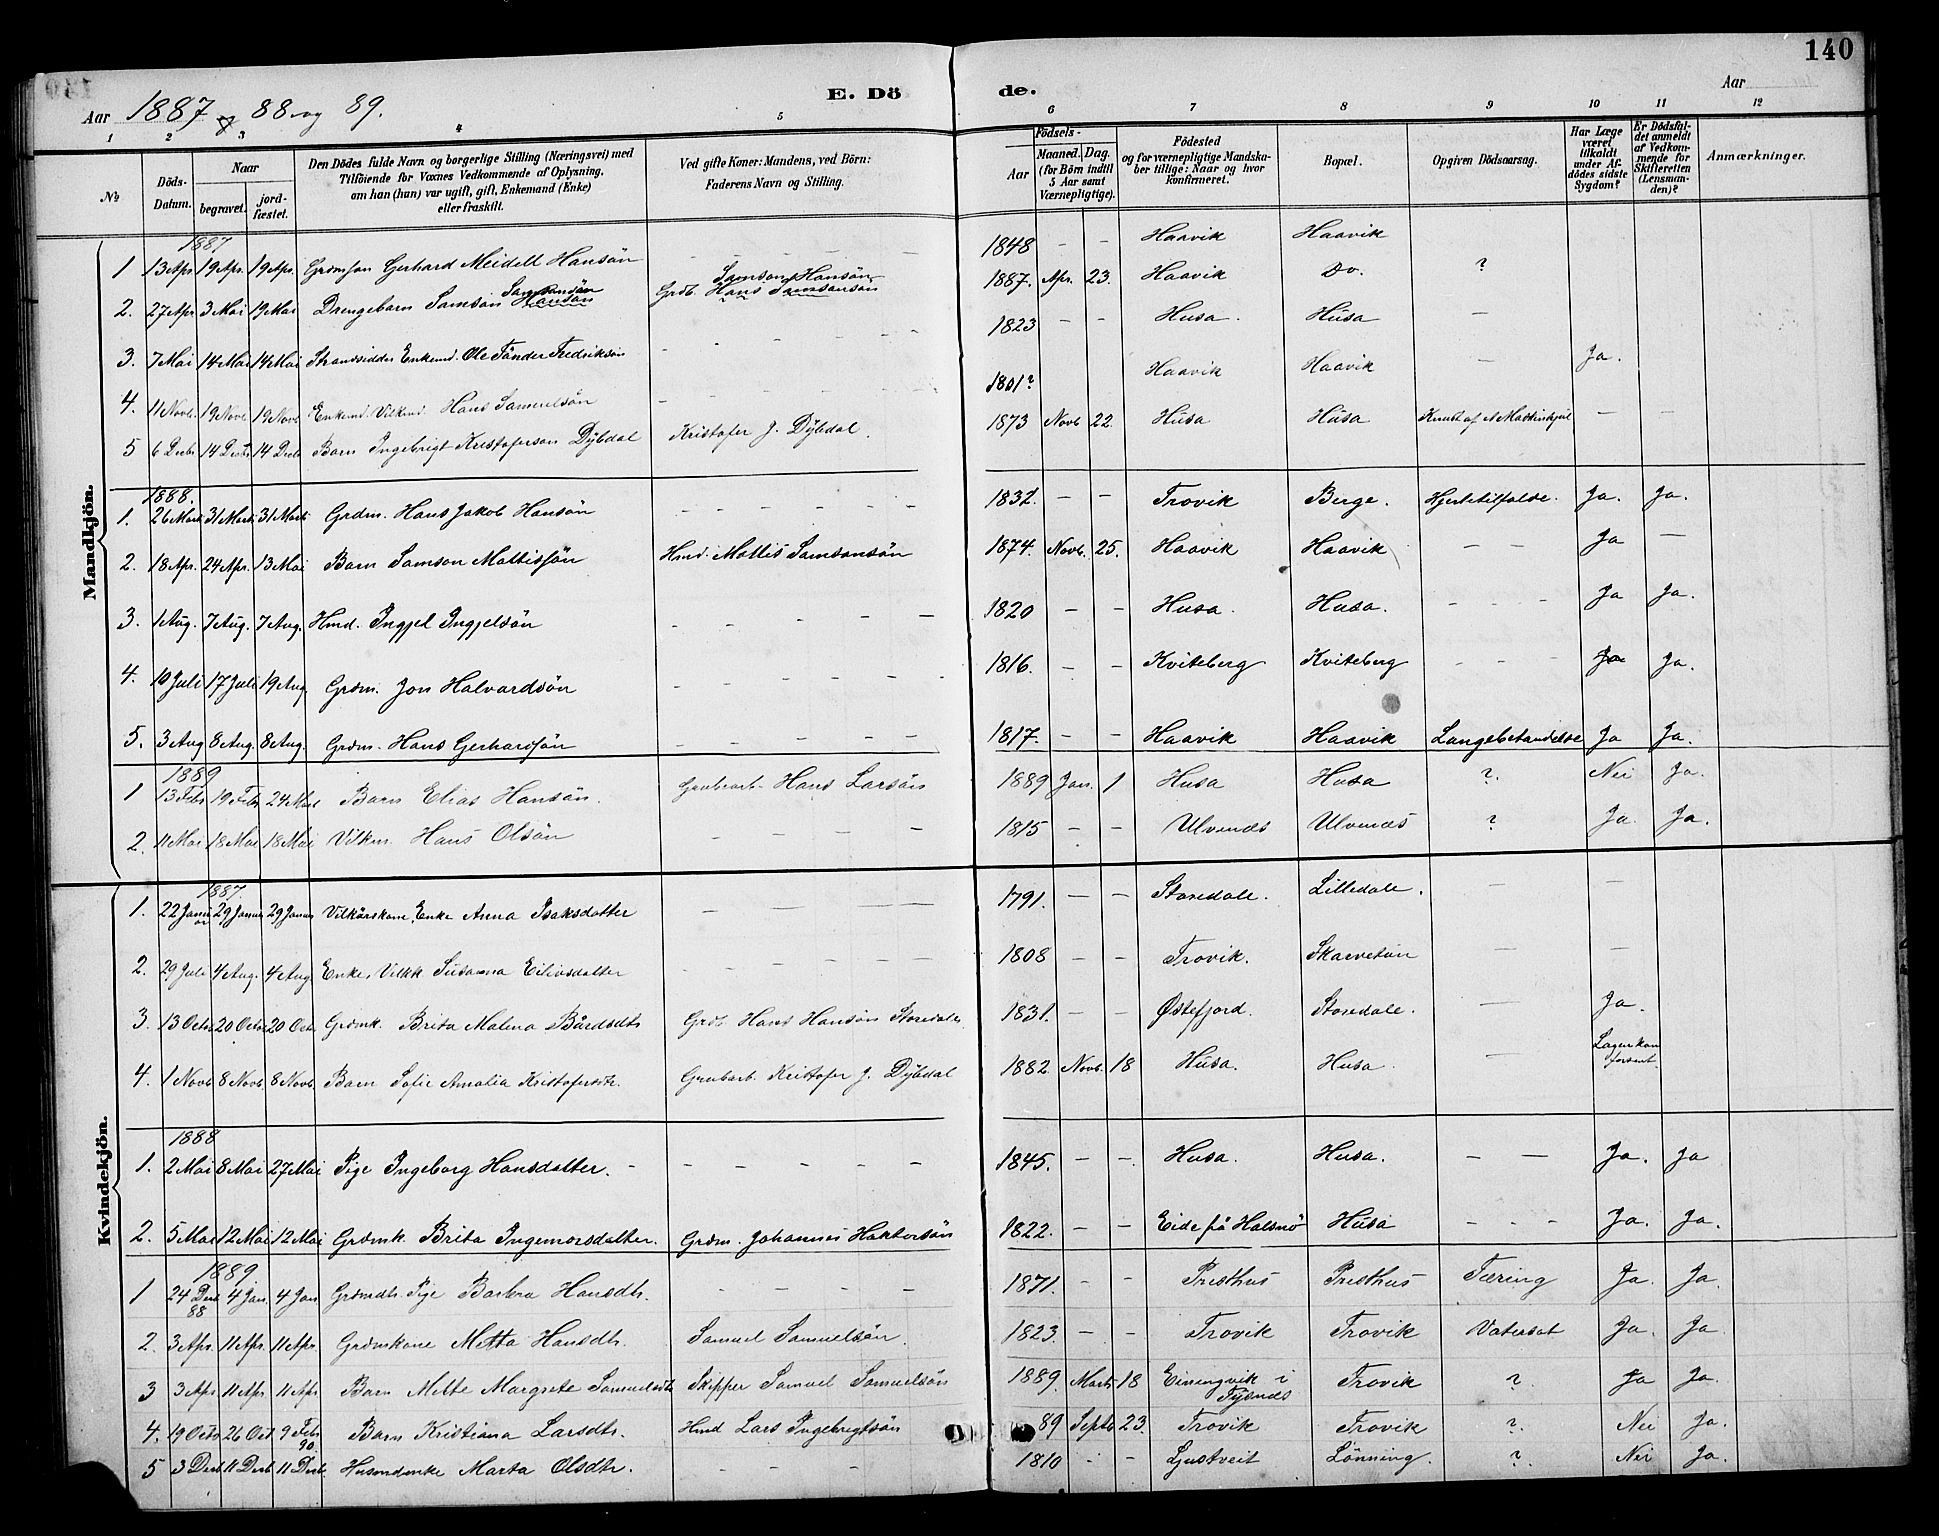 140
Aar 1887 og 88 og 89.
E. Dö de.
Aar
1 2 3 4 5 6 7 8 9 10 11 12
No.
Döds-Datum.
Naar
begravet.
jord-fæstet.
Den Dödes fulde Navn og borgerlige Stilling (Næringsvei) med
Tilföiende for Voxnes Vedkommende af Oplysning,
om han (hun) var ugift, gift, Enkemand (Enke)
eller fraskilt.
Ved gifte Koner: Mandens, ved Börn:
Faderens Navn og Stilling.
Födsels-
Aar
Maaned. Dag.
(for Börn indtil
5 Aar samt
Værnepligtige).
Födested
og for værnepligtige Mandska-
ber tillige: Naar og hvor
konfirmeret.
Bopæl.
Opgiven Dödsaarsag.
Har Læge
været
tilkaldt
under Af-
dödes sidste
Sygdom?
Er Dödsfal-
det anmeldt
af Vedkom-
mende for
Skifteretten
(Lensman-
den)?
Anmærkninger.
Mandkjön.
1887
1 13 Apr. 19 Apr. 19 Apr. Grdmson Gerhard Meidell Hansön - - - - - 1848 - - Haavik Haavik
2. 27 Apr 3 Mai 19 Mai Drengebarn Samson Hansön Samsonsön Grdb. Hans Samsonsön Samson Hansön 1887. Apr. 23. Haavik Do. ?
3. 7 Mai 14 Mai 14 Mai Strandsidder Enkemd. Ole Tönder Fredriksön - - - - - 1823 - - Husa. Husa -
4. 11 Novb. 19 Novb 19 Novb Enkemd. Vilkmd. Hans Samuelsön - - 1801? Haavik Haavik - Ja.
5 6 Decbr 14 Decbr 14 Decb Barn Ingebrigt Kristofersön Dÿbdal Kristofer J. Dÿbdal. 1873 Novb 22 Husa Husa Knust af - -
1888.
1. 26 Marts 31 Marts 31 Marts Grdm. Hans Jakob Hansön - - - - - - 1832. - - Trovik Berge. Hjertetilfælde. Ja. Ja.
2. 18 Apr. 24 Apr. 13 Mai Barn Samson Mattissön Hmd. Mattis Samsonsön 1874. Novb. 25. Haavik Haavik - - Ja -
3. 1 Aug. 7 Aug. 7 Aug. Hmd. Ingjel Ingjelsön - - - - - 1820 - - Husa. Husa. - - - Ja Ja.
4. 10 Juli 17 Juli 19 Aug. Grdm. Jon Halvardsön - - - - - 1816. - - Kviteberg Kviteberg - - - Ja Ja.
5. 3 Aug 8 Aug. 8 Aug. Grdm. Hans Gerhardsön - - - - - 1817. - - Haavik Haavik Lungebetændelse Ja Ja.
1889
1 13 Febr 19 Febr 24 Mai Barn Elias Hansön. Grubearb. Hans Larsön 1889 Jan. 1 Husa Husa ?. Nei Ja.
2. 11 Mai 18 Mai 18 Mai Vilkm. Hans Olsön - - - - 1815 - - Ulvenæs Ulvenæs ? Ja. Ja.
Kvindekjön.
1887
1. 22 Januar 29 Januar 29 Januar Vilkårskone, Enke Anna Isaksdatter - - - - - 1791. - - Storedale. Lilledale. - -
2. 29 Juli 4 Aug. 4 Aug Enke, Vilkk Susanna Eilivsdatter - - - - - 1808 Trovik. Skarvetun - -
3. 13 Octbr 20 Octbr 20 Oct. Grdmk. Brita Malena Bårdsdtr Grdb. Hans Hansön Storedale. 1831. - - Østefjord. Storedale. - Ja.
4. 1 Novb 8 Novb. 8 Novb. Barn Sofie Amalia Kristofersdtr. Grubearb. Kristofer J. Dÿbdal 1882. Novb. 18 Husa. Husa. - Lægen kom
forsent.
1888
1. 2 Mai 8 Mai 27 Mai Pige Ingeborg Hansdatter. - - - - - - 1845. - - Husa. Husa. - - Ja. Ja
2. 5 Mai 12 Mai 12 Mai Grdmk. Brita Ingemorsdatter. Grdm. Johannes Haktorsön 1822. - - Eide på Halsnö Husa - - - Ja. Ja.
1889
1 24 Decb 88 4 Jan. 4 Jan Grdmdtr. Pige Barbra Hansdtr. - - - - 1871. - - Presthus Presthus Tæring Ja. Ja.
2. 3 Apr. 11 Apr. 11 Apr. Grdmkone Metta Hansdtr. Samuel Samuelsön. 1823. - - Trovik Trovik Vatersot Ja. Ja
3 3 Apr 11 Apr 11 Apr Barn Mette Margrete Samuelsdtr Skipper Samuel Samuelsön 1889. Marts 18 Einingvik i
Tysnæs Trovik ?. Ja Ja.
4. 19 Octbr 26 Oct 9 Febr 90. Barn Kristiana Larsdtr. Hmd Lars Ingebrigtsön 89 Septb 23. Trovik Trovik ?. Nei Ja.
5 3 Decb 11 Decb 11 Decb Husmdenke Marta Olsdtr. - - - - 1810 - - Ljustveit Lönning. ?. Nei Ja.